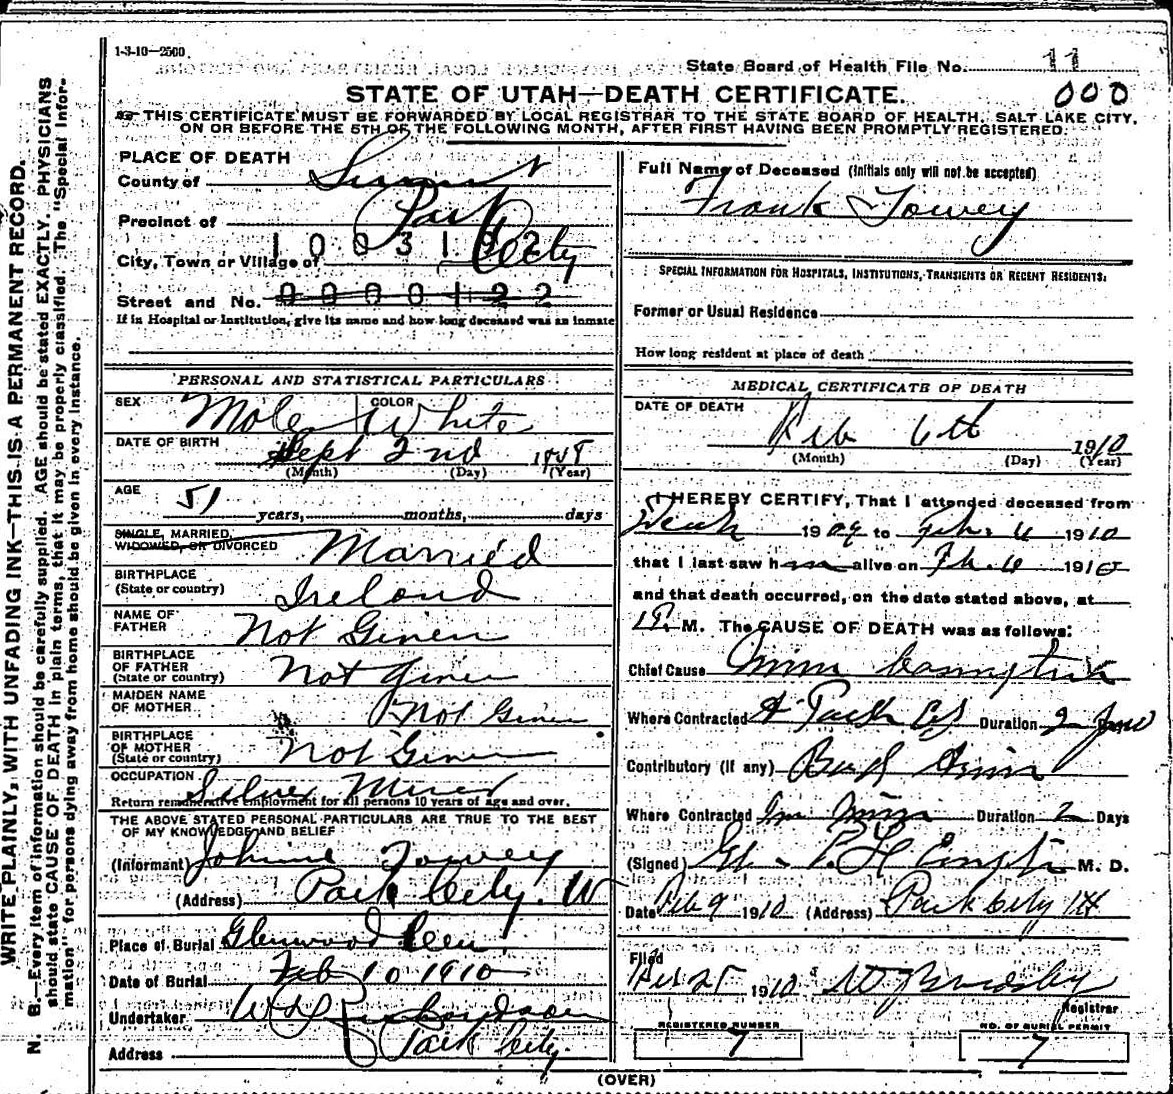 1-3-10—2500
State Board of Health File No. 11
000
STATE OF UTAH—DEATH CERTIFICATE.
THIS CERTIFICATE MUST BE FORWARDED BY LOCAL REGISTRAR TO THE STATE BOARD OF HEALTH, SALT LAKE CITY,
ON OR BEFORE THE 5TH OF THE FOLLOWING MONTH, AFTER FIRST HAVING BEEN PROMPTLY REGISTERED.
WRITE PLAINLY, WITH UNFADING INK—THIS IS A PERMANENT RECORD.
N. B.—Every item of information should be carefully supplied. AGE should be stated EXACTLY. PHYSICIANS
should state CAUSE OF DEATH in plain terms, that it may be properly classified. The "Special Infor-
mation" for persons dying away from home should be given in every instance.
PLACE OF DEATH
County of Summit
Precinct of Park
1003192
City, Town or Village of City
Street and No. 0000122
If in Hospital or Institution, give its name and how long deceased was an inmate
PERSONAL AND STATISTICAL PARTICULARS
SEX Male COLOR White
DATE OF BIRTH Sept 2nd
(Month) (Day) (Year)
AGE 51 years, months, days
SINGLE, MARRIED,
WIDOWED, OR DIVORCED Married
BIRTHPLACE
(State or country) Ireland
NAME OF
FATHER Not Given
BIRTHPLACE
OF FATHER
(State or country) Not given
MAIDEN NAME
OF MOTHER Not Given
BIRTHPLACE
OF MOTHER
(State or country) Not Given
OCCUPATION Silver Miner
Return remunerative employment for all persons 10 years of age and over.
THE ABOVE STATED PERSONAL PARTICULARS ARE TRUE TO THE BEST
OF MY KNOWLEDGE AND BELIEF
(Informant) Johnnie Towey
(Address) Park City.
Place of Burial Glenwood Cem.
Date of Burial Feb 10 1910
Undertaker W
Address Park City.
Full Name of Deceased (Initials only will not be accepted)
Frank Towey
SPECIAL INFORMATION FOR HOSPITALS, INSTITUTIONS, TRANSIENTS OR RECENT RESIDENTS:
Former or Usual Residence
How long resident at place of death
MEDICAL CERTIFICATE OF DEATH
DATE OF DEATH
Feb 6th 1910
(Month) (Day) (Year)
I HEREBY CERTIFY, That I attended deceased from
1909 to Feb. 6 1910
that I last saw him alive on Feb. 6 1910
and that death occurred, on the date stated above, at
M. The CAUSE OF DEATH was as follows:
Chief Cause
Where Contracted Park City Duration 2
Contributory (if any) Bad
Where Contracted In Mine Duration 2 Days
(Signed) M. D.
Date Feb 9 1910 (Address) Park City
Filed
Feb 25 1910
Registrar
REGISTERED NUMBER
7
NO. OF BURIAL PERMIT
7
(OVER)